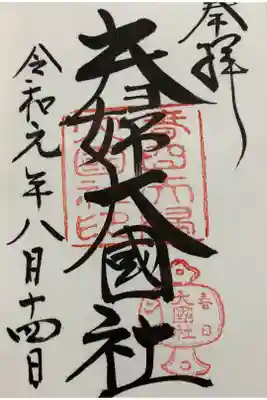 奉拝
夫婦大國社
令和元年八月十四日
春日
大國社